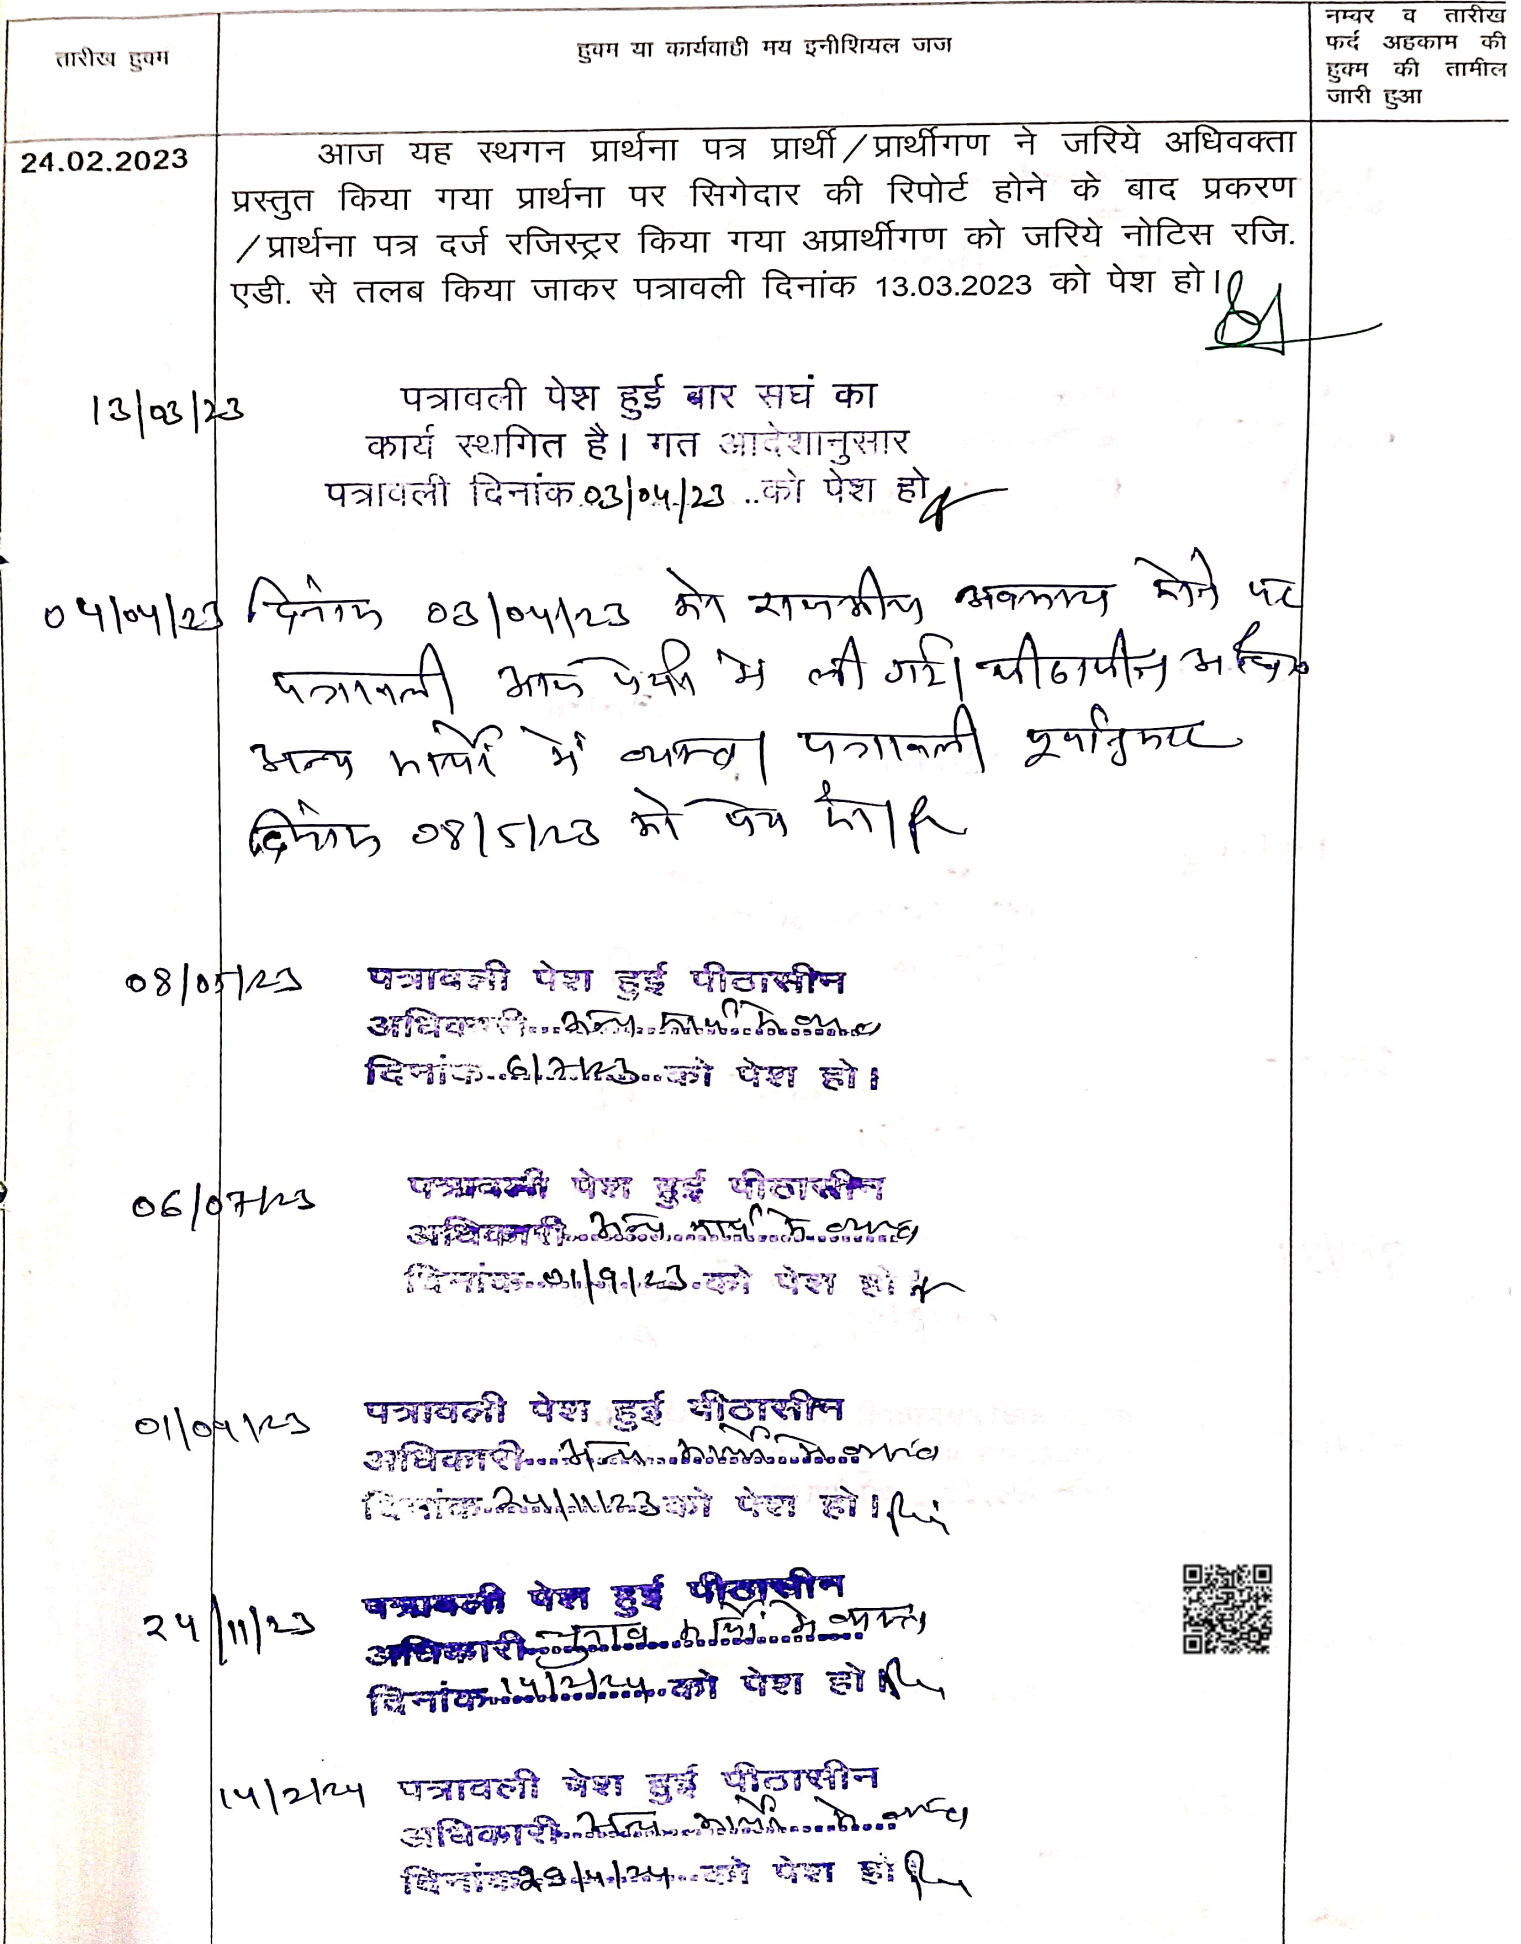 तारीख हुक्म
हुक्म या कार्यवाही मय इनीशियल जज
नम्बर व तारीख
फर्द अहकाम की
हुक्म की तामील
जारी हुआ
24.02.2023
आज यह स्थगन प्रार्थना पत्र प्रार्थी/प्रार्थीगण ने जरिये अधिवक्ता
प्रस्तुत किया गया प्रार्थना पर सिगेदार की रिपोर्ट होने के बाद प्रकरण
/प्रार्थना पत्र दर्ज रजिस्ट्रर किया गया अप्रार्थीगण को जरिये नोटिस रजि.
एडी. से तलब किया जाकर पत्रावली दिनांक 13.03.2023 को पेश हो।
13/03/23
पत्रावली पेश हुई बार सघं का
कार्य स्थगित है। गत आदेशानुसार
पत्रावली दिनांक 03/04/23 ..को पेश हो
04/04/23 दिनांक 03/04/23 को राजकीय अवकाश होने पर
पत्रावली आज पेशी में ली गई। पीठासीन
अन्य कार्यों में व्यस्त। पत्रावली पूर्वानुसार
दिनांक 08/5/23 को पेश हो।
08/05/23 पत्रावली पेश हुई पीठासीन
अधिकारी...अन्य कार्यों में व्यस्त
दिनांक..6/7/23..को पेश हो।
06/07/23 पत्रावली पेश हुई पीठासीन
अधिकारी..अन्य कार्यों में व्यस्त
दिनांक..01/9/23.को पेश हो।
01/09/23 पत्रावली पेश हुई पीठासीन
अधिकारी...अन्य कार्यों में व्यस्त
दिनांक.24/11/23 को पेश हो।
24/11/23 पत्रावली पेश हुई पीठासीन
अधिकारी चुनाव कार्यों में व्यस्त
दिनांक..14/2/24..को पेश हो।
14/2/24 पत्रावली पेश हुई पीठासीन
अधिकारी..अन्य कार्यों में व्यस्त
दिनांक 29/4/24..को पेश हो